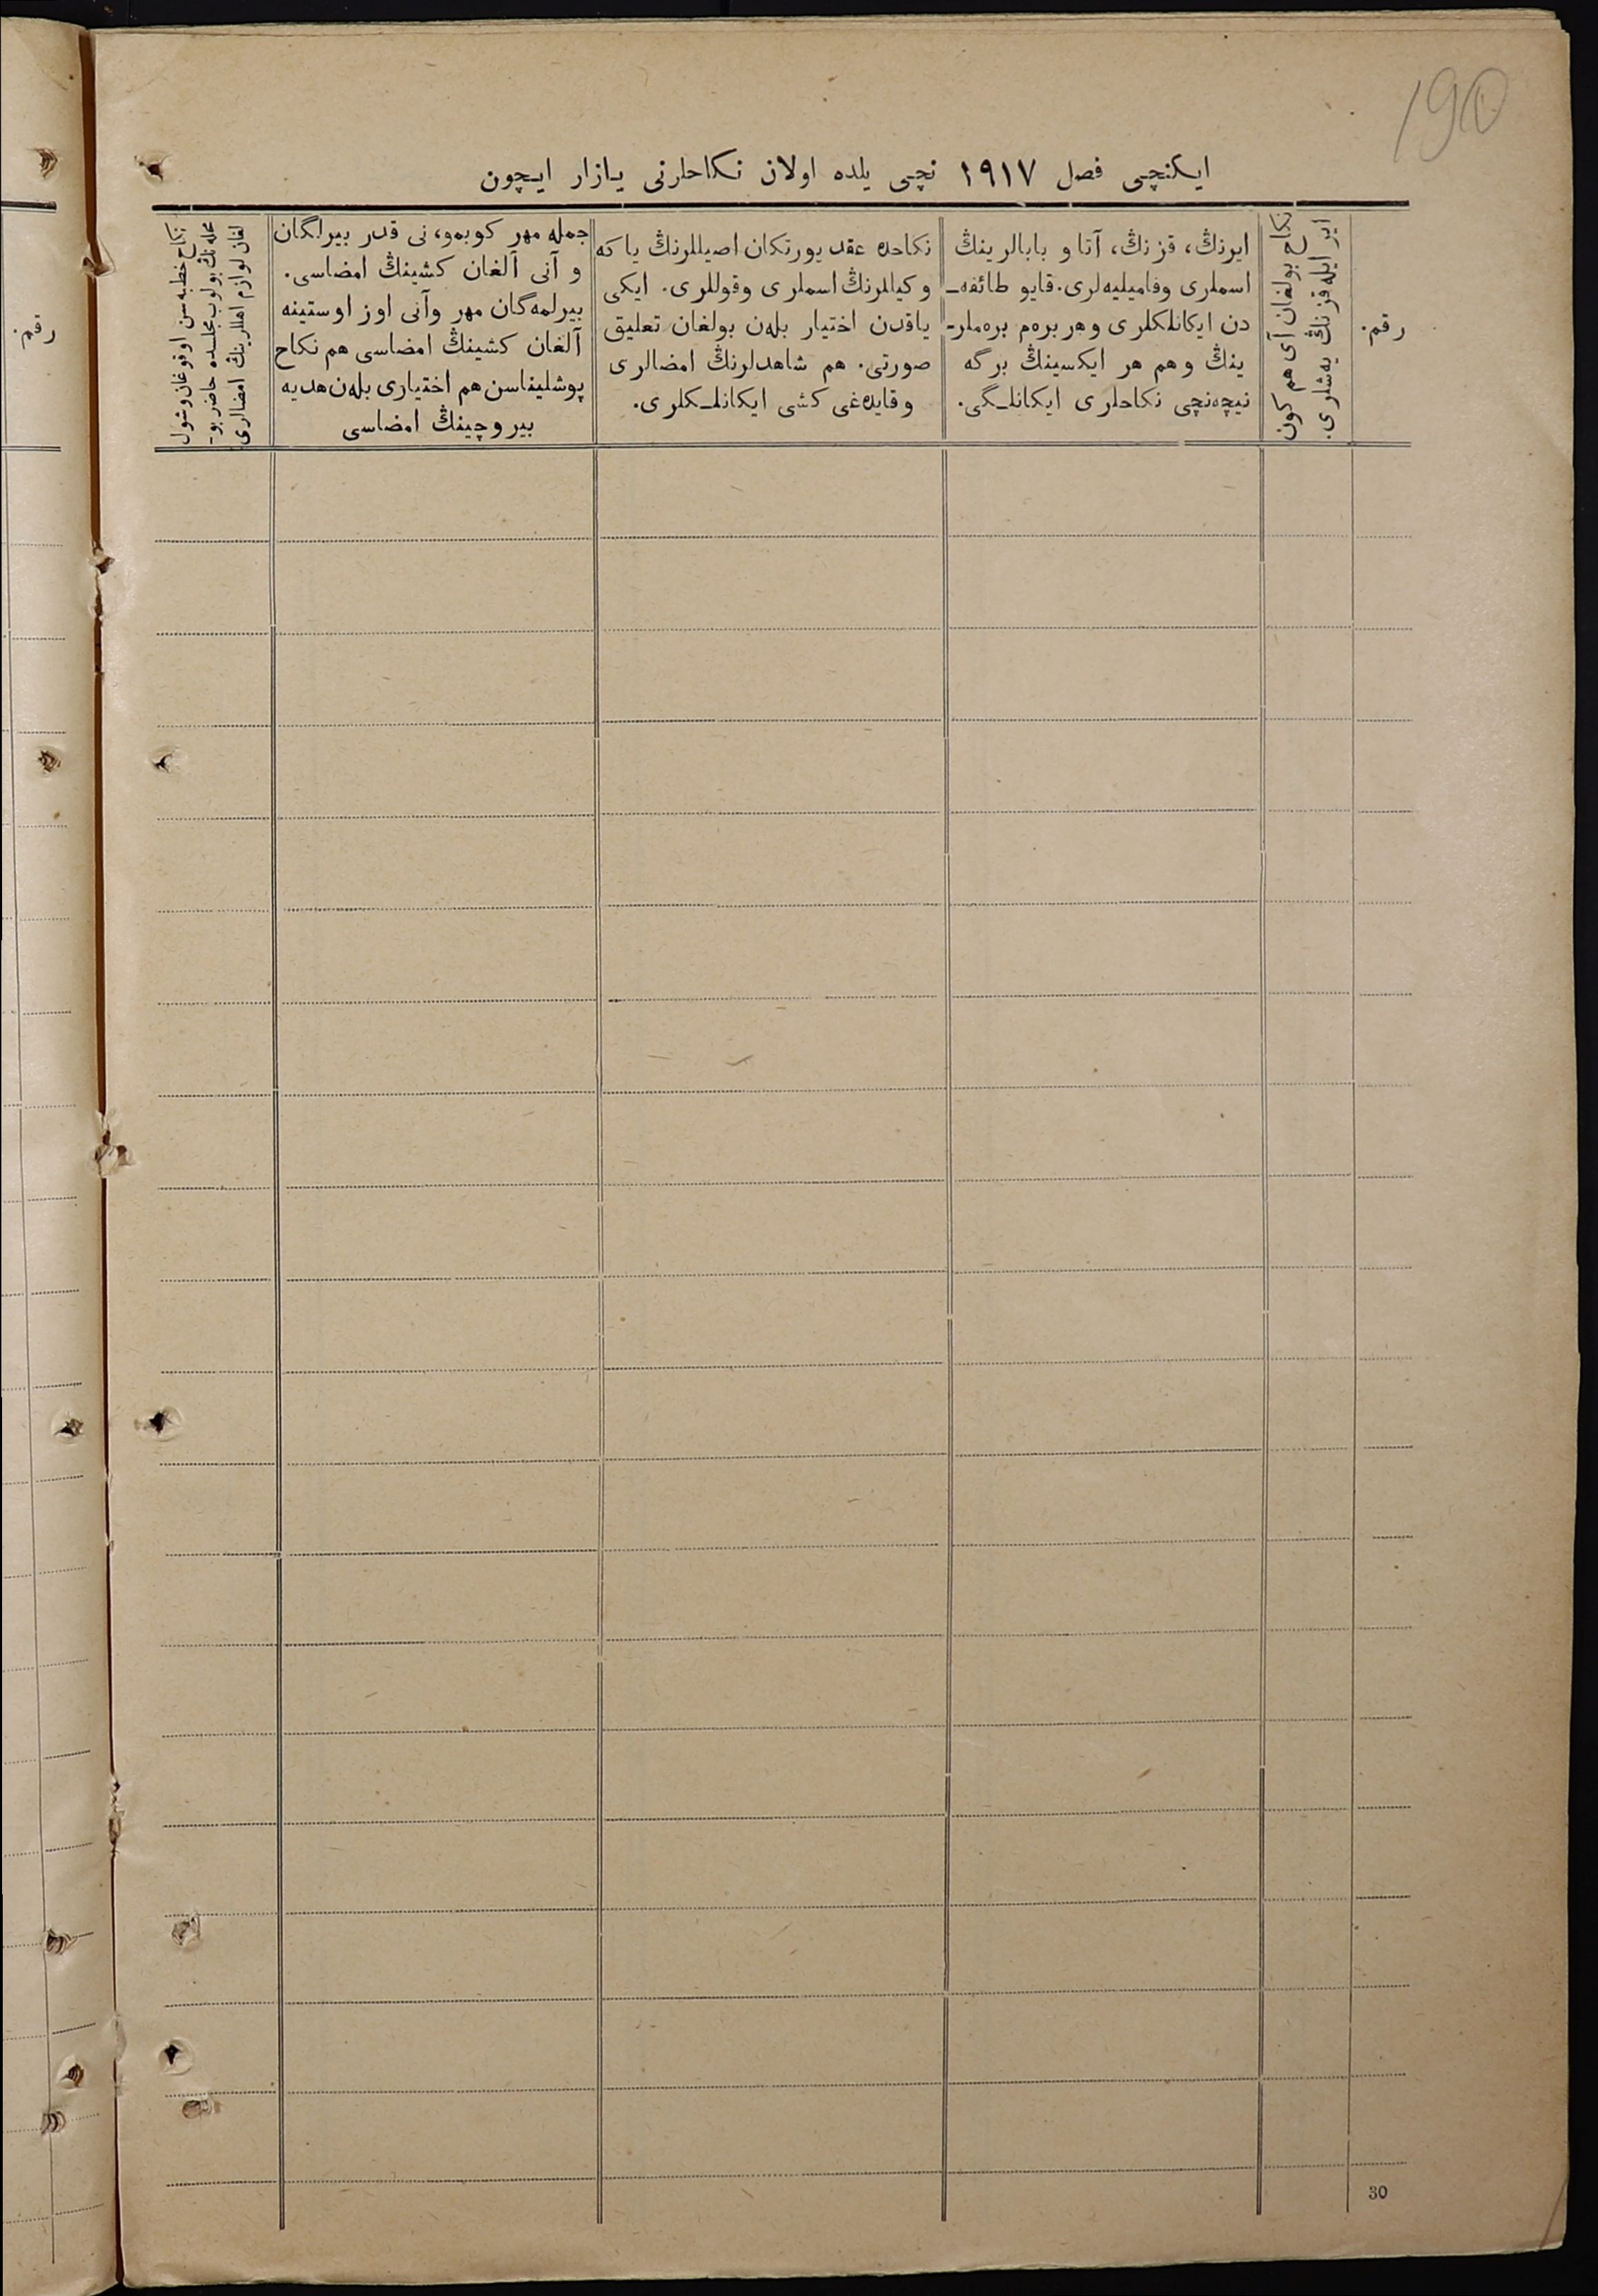 190
ایکنچی فصل ١٩١٧ نچی یلده اولان نکاحلرنی یازار ایچون
رقم.
ایر ایله قزنڭ یه‌شلری.
نکاح بولغان آی هم کون
ایرنڭ، قزنڭ، آتا و بابالرینڭ
اسملری وفامیلیه‌لری. قایو طائفه‌ـ
دن ایکانلکلری وهر بره‌م بره‌ملرـ
ینڭ وهم هر ایکسینڭ برگه
نیچه‌نچی نکاحلری ایکانلـگی.
نکاحده عقد یورتکان اصیللرنڭ یا که
وکیللرنڭ اسملری وقوللری. ایکی
یاقدن اختیار بله‌ن بولغان تعلیق
صورتی. هم شاهدلرنڭ امضالری
وقایده‌غی کشی ایکانلـکلری.
جمله مهر کوبمو، نی قدر بیرلگان
و آنی آلغان کشینڭ امضاسی.
بیرلمه‌گان مهر وآنی اوز اوستینه
آلغان کشینڭ امضاسی هم نکاح
پوشلیناسن هم اختیاری بله‌ن هدیه
بیروچینڭ امضاسی
نکاح خطبه‌سن اوقوغان وشول
محله‌نڭ بولوب مجلسده حاضر بوـ
لغان لوازم اهللرینڭ امضالری
رقم.
30